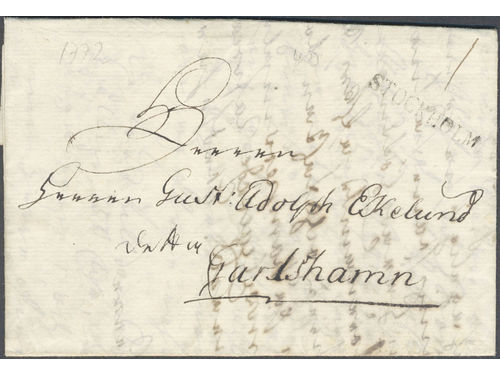 1772
STOCKHOLM
Herren
Herren Gust: Adolph Ekelund
Carlshamn